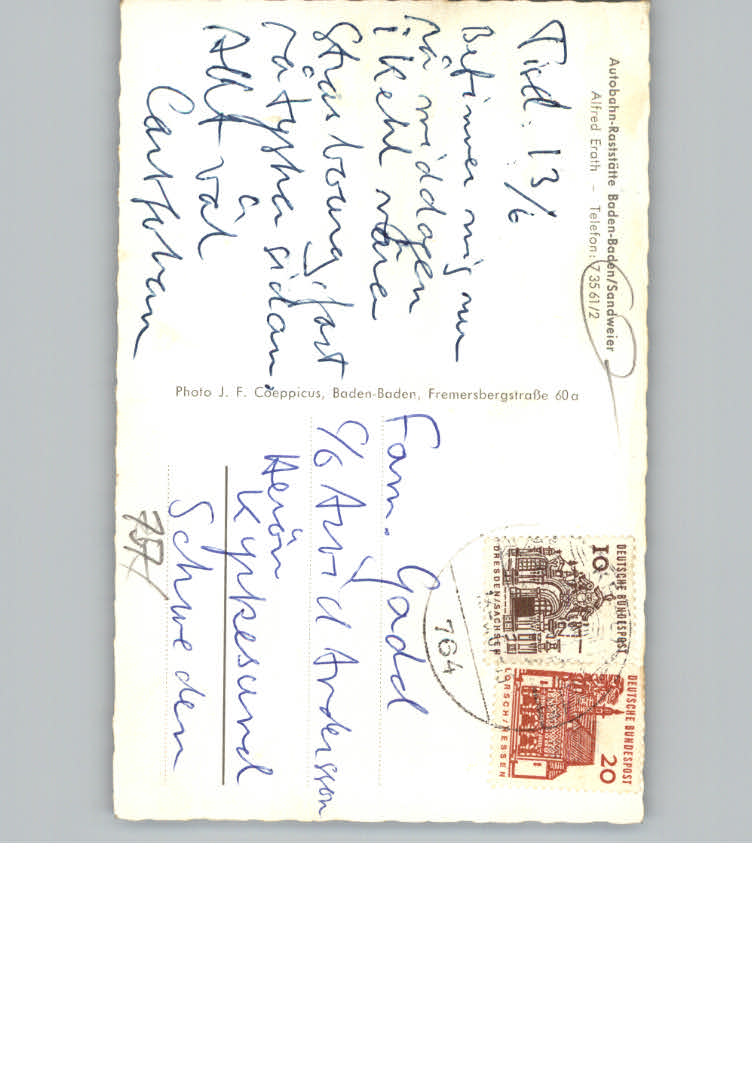 Autobahn-Raststätte Baden-Baden/Sandweier
Alfred Erath – Telefon: 7 35 61/2
Tisd. 13/6
Befinner mig nu
på middagen
i Kehl nära
Strasbourg, fast
på tyska sidan.
Allt är väl
Carl Johan
Photo J. F. Coeppicus, Baden-Baden, Fremersbergstraße 60a
Fam. Gadd
c/o Arvid Andersson
Herön
Kyrkesund
Schweden
757
764
DEUTSCHE BUNDESPOST
10
DRESDEN/SACHSEN
DEUTSCHE BUNDESPOST
20
LORSCH/HESSEN